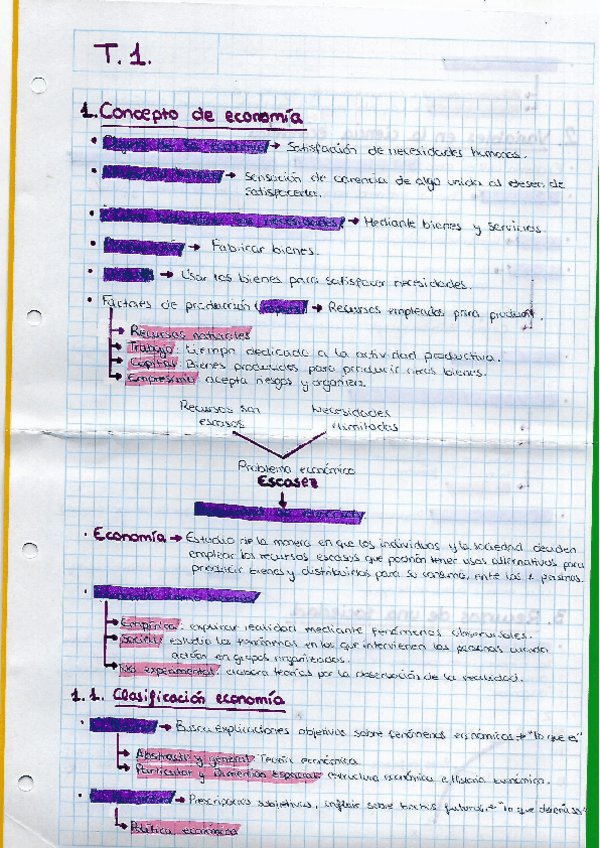 T.1.
1. Concepto de economía
→ Satisfacción de necesidades humanas.
→ Sensación de carencia de algo unida al deseo de
satisfacerla.
→ Mediante bienes y servicios.
→ Fabricar bienes.
→ Usar los bienes para satisfacer necesidades.
Factores de producción → Recursos empleados para producir.
→ Recursos naturales
→ Trabajo: tiempo dedicado a la actividad productiva.
→ Capital: Bienes producidos para producir otros bienes.
→ Empresario: acepta riesgos y organiza.
Recursos son Necesidades
escasos ilimitadas
Problema económico
Escasez
Economía → Estudio de la manera en que los individuos y la sociedad deciden
emplear los recursos escasos que podrían tener usos alternativos para
producir bienes y distribuirlos para su consumo, entre las personas.
→ Empírica: explicar realidad mediante fenómenos observables.
→ Social: estudia los fenómenos en los que intervienen las personas cuando
actúan en grupos organizados.
→ No experimental: elabora teorías por la observación de la realidad.
1.1. Clasificación economía
→ Busca explicaciones objetivas sobre fenómenos económicos → "lo que es"
→ Abstracta y general: Teoría económica.
→ Particular y dimensión espacial: estructura económica e Historia Económica.
→ Prescripciones subjetivas, influir sobre hechos futuros →
→ Política económica